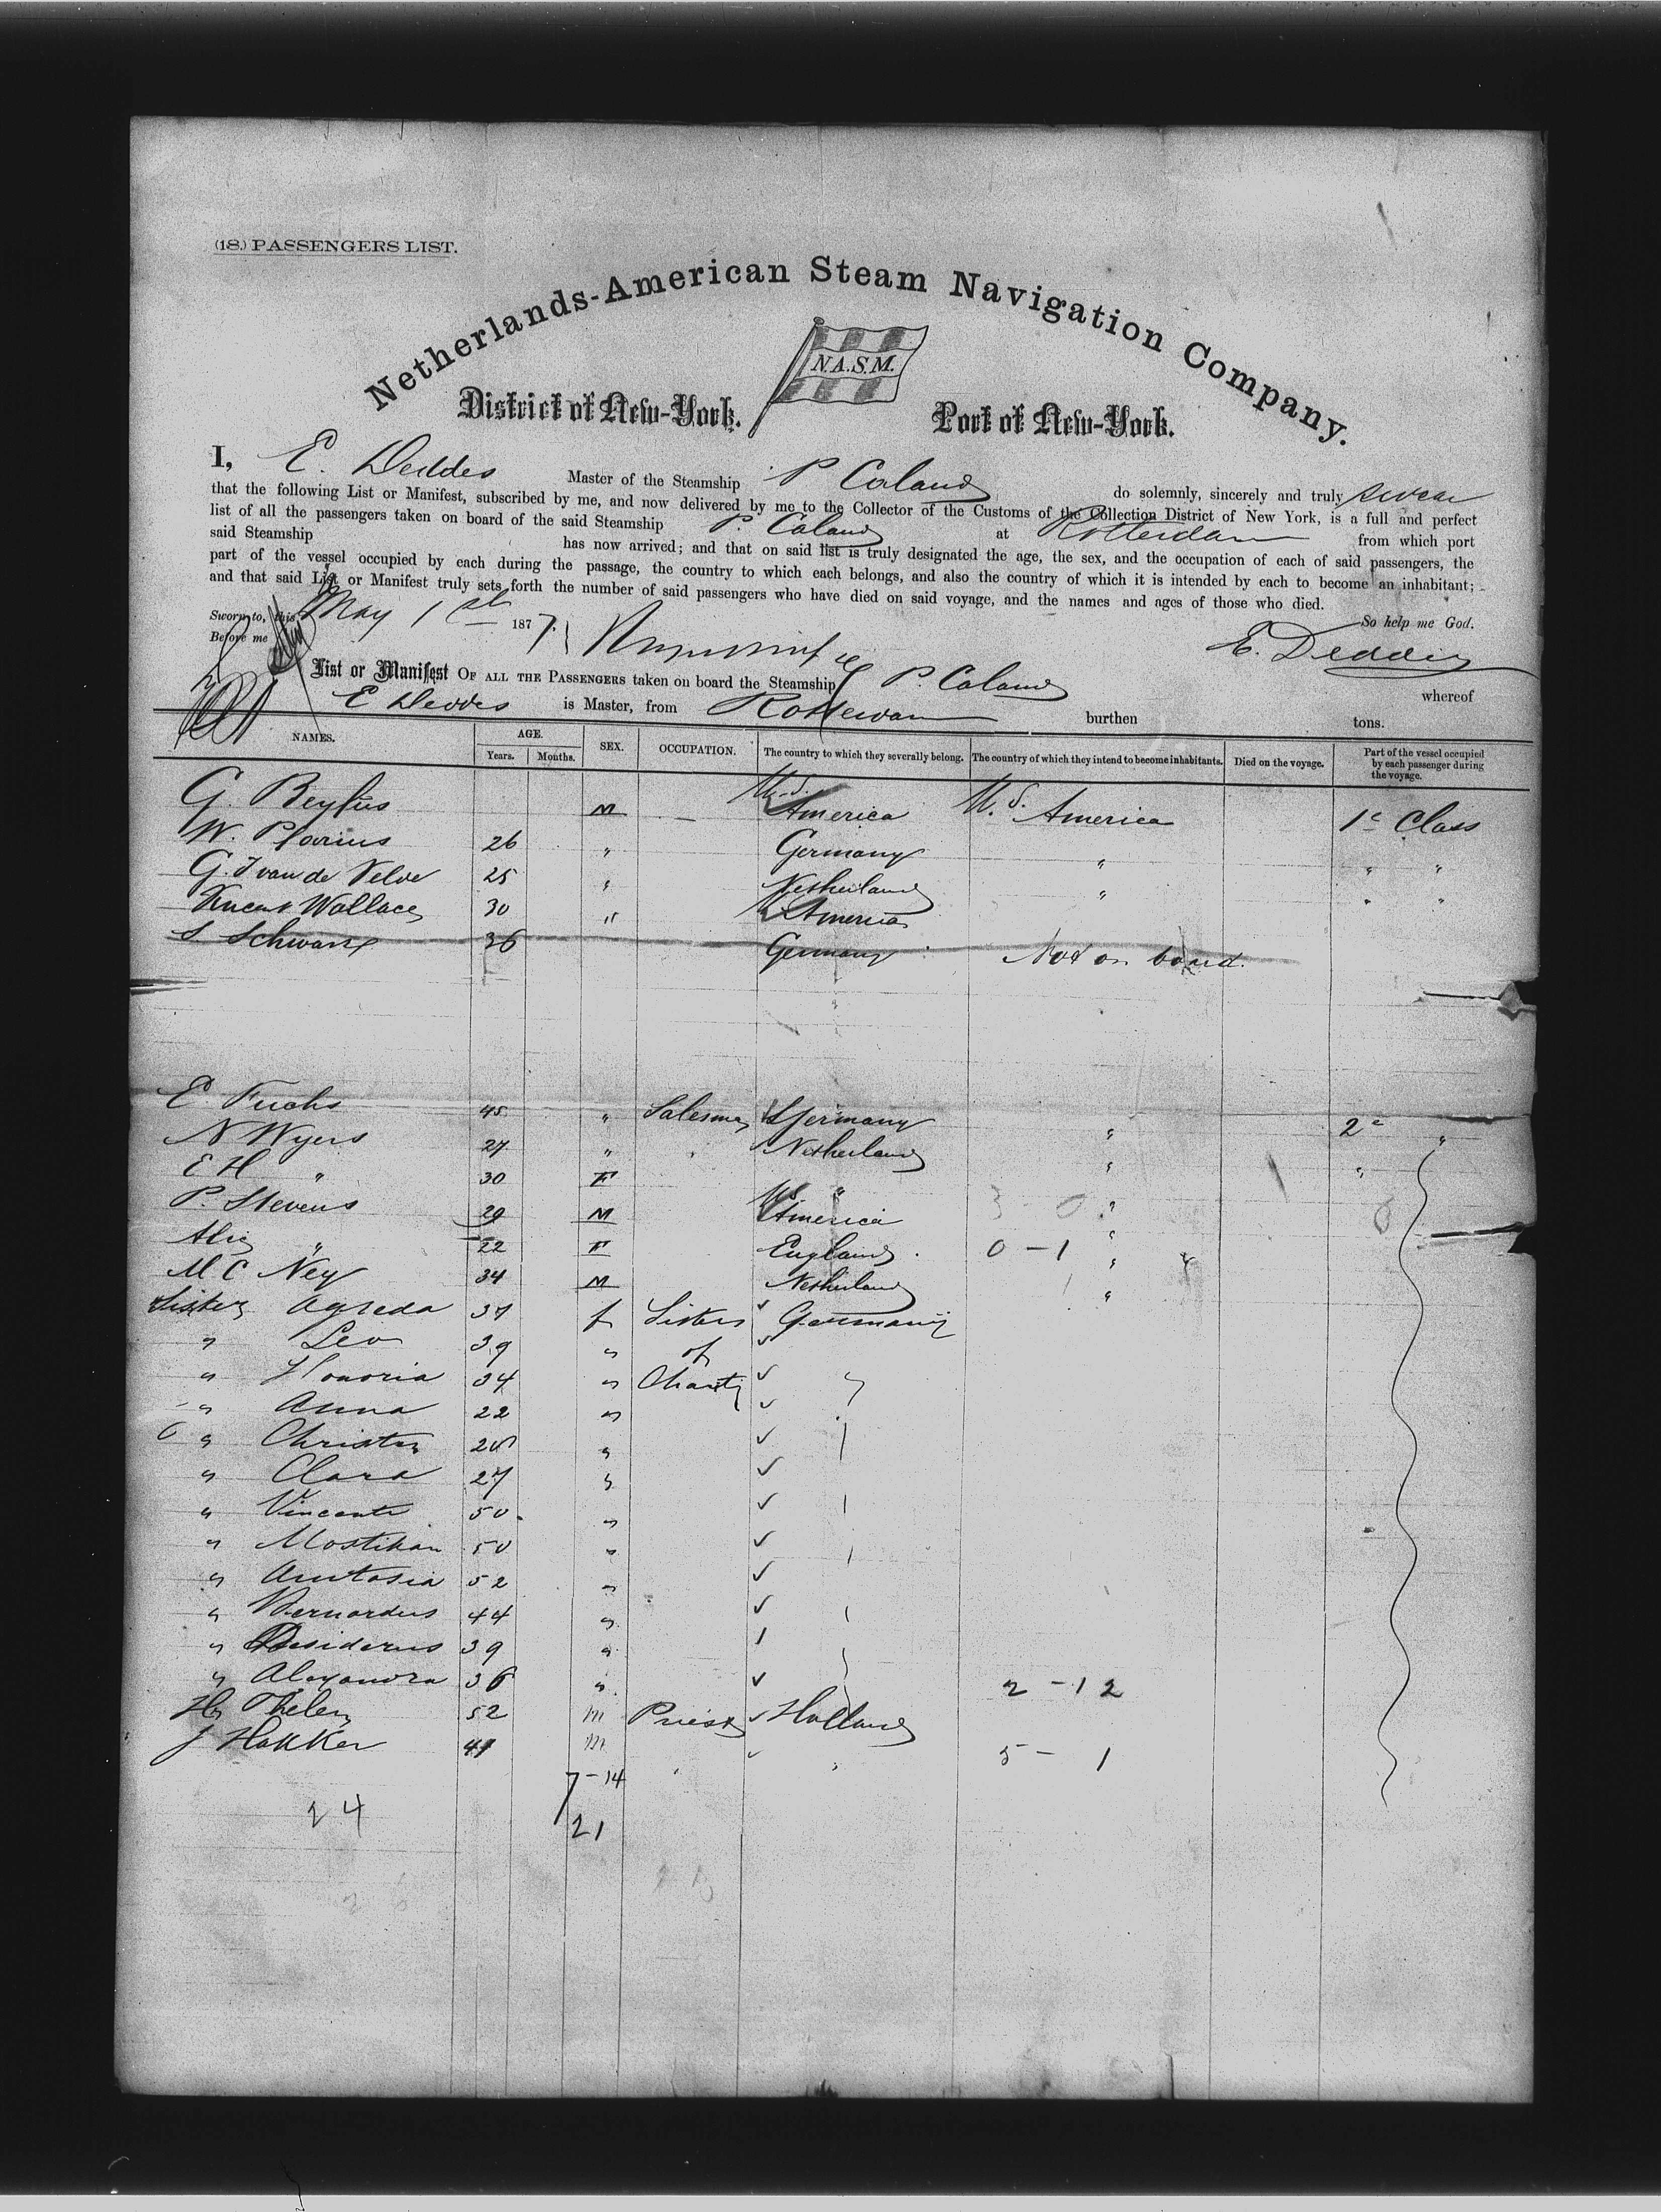 (18.) PASSENGERS LIST.
Netherlands-American Steam Navigation Company.
N.A.S.M.
District of New-York. Port of New-York.
I, E. Deddes Master of the Steamship P Caland do solemnly, sincerely and truly swear
that the following List or Manifest, subscribed by me, and now delivered by me to the Collector of the Customs of the Collection District of New York, is a full and perfect
list of all the passengers taken on board of the said Steamship P. Caland at Rotterdam from which port
said Steamship has now arrived; and that on said list is truly designated the age, the sex, and the occupation of each of said passengers, the
part of the vessel occupied by each during the passage, the country to which each belongs, and also the country of which it is intended by each to become an inhabitant;
and that said List or Manifest truly sets forth the number of said passengers who have died on said voyage, and the names and ages of those who died.
Sworn to, this May 1st 1877. So help me God.
Before me E. Deddes
List or Manifest OF ALL THE PASSENGERS taken on board the Steamship P. Caland whereof
E Deddes is Master, from Rotterdam burthen tons.
NAMES. AGE. Years. Months. SEX. OCCUPATION. The country to which they severally belong. The country of which they intend to become inhabitants. Died on the voyage. Part of the vessel occupied by each passenger during the voyage.
G. Beyfus M — U.S. America U. S. America 1e Class
W. 26 " Germany " " "
G. J van de Velde 25 " Netherland " " "
Wallace 30 " America
S Schwarz 36 Germany Not on board.
E. Fuchs 45 " Salesman Germany " 2e "
N Wyers 27 " Netherland " "
E H " 30 F " "
P. Stevens 29 M U.S. America "
" 22 F England 0 - 1 "
M C Ney 34 M Netherland "
Sister Agreda 37 f Sisters Germany
" Leo 39 " of
" Honoria 34 " Charity "
" Anna 22 "
" "
" Clara 27 "
" 50 "
" 50 "
" 52 "
" Bernardus 44 "
" Desiderius 39 "
" Alexandra 36 " 2 - 12
52 m Priest Holland
J Hakker 41 m " " 5 - 1
7 - 14
24 21